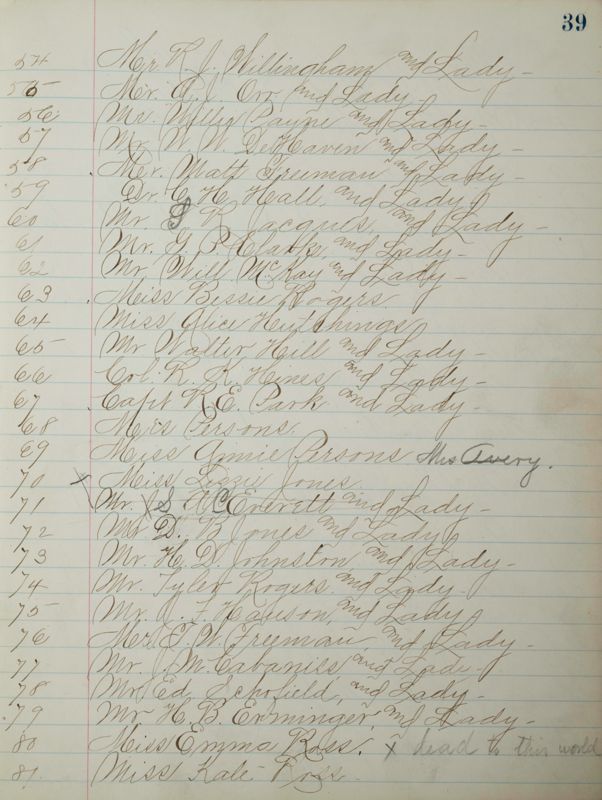 39
54 Mr. R. J. Willingham and Lady -
55 Mr. A. J. Orr and Lady
56 Mr. Willy Payne and Lady -
57 Mr. W. W. DeHaven and Lady -
58 Mr. Matt Freeman and Lady -
59 Dr. C. H. Hall and Lady
60 Mr. S. R. Jacques, and Lady -
61 Mr. G. P. and Lady -
62 Mr. Will McKay and Lady -
63 Miss Bessie Rogers
64 Miss Alice Hutchings
65 Mr Walter Hill and Lady -
66 Col. R. K. Hines and Lady -
67 Capt R. E. Park and Lady -
68 Mrs Persons.
69 Miss Annie Persons Mrs Avery.
70 x Miss Lizzie Jones
71 Mr. S A C Everett and Lady -
72 Mr D. B Jones and Lady
73 Mr. H. D. Johnston and Lady -
74 Mr. Tyler Rogers and Lady -
75 Mr. J. F. Hanson, and Lady
76 Mr. T. W. Freeman, and Lady -
77 Mr. J. M. Cabaniss, and Lady -
78 Mr Ed. Schofield, and Lady -
79 Mr H. B. Erminger, and Lady -
80 Miss Emma Ross. x dead to this world
81 Miss Kate Ross -